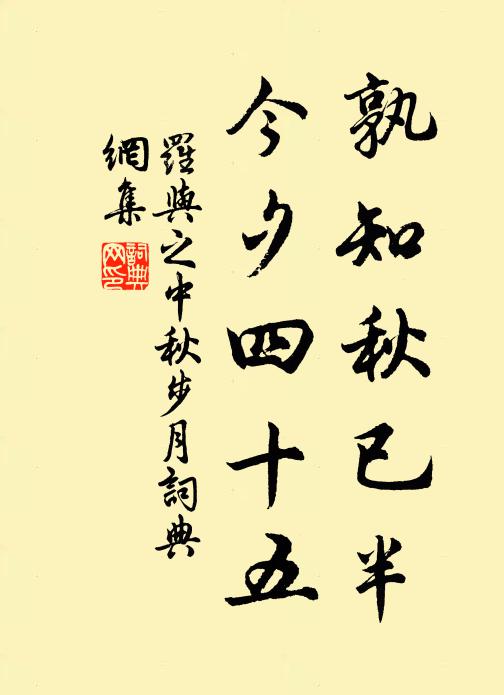 孰知秋已半
今夕四十五
羅與之中秋步月詞典
網集
詞典
网印